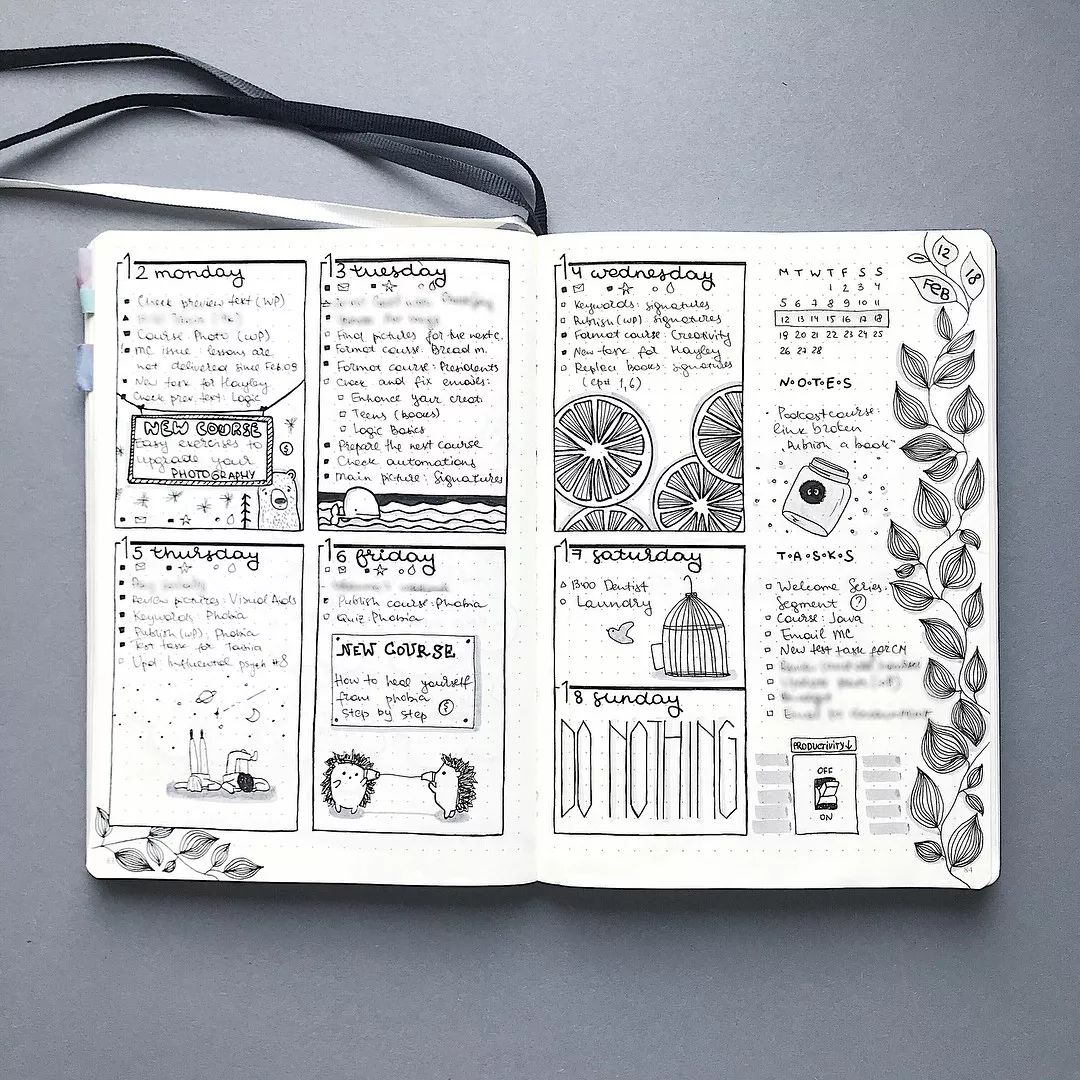 12 monday
Check preview text (WP)
Course: Photo (WP)
MC issue: lessons are
not delivered since Feb.09
New task for Hayley
Check prev. text: Logic
NEW COURSE
Easy exercises to
upgrade your
PHOTOGRAPHY
13 tuesday
Final pictures for the next c.
Format course: Bread m.
Format course: Presidents
Check and fix emails:
Enhance your creat.
Teens (books)
Logic Basics
Prepare the next course
Check automations
Main picture: signatures
15 thursday
Review pictures: Visual Aids
Keywords: Phobia
Publish (WP): Phobia
Test task for
Upd: Influential psych #8
16 friday
Publish course: Phobia
Quiz: Phobia
NEW COURSE
How to heal yourself
from phobia
step by step
14 wednesday
Keywords: signatures
Publish (WP): signatures
Format course: Creativity
New task for Hayley
Replace books: signatures
(ep# 1,6)
17 saturday
1300 Dentist
Laundry
18 sunday
DO NOTHING
12
18
FEB
M T W T F S S
1 2 3 4
5 6 7 8 9 10 11
12 13 14 15 16 17 18
19 20 21 22 23 24 25
26 27 28
N.O.T.E.S
Podcast course:
link broken
"Publish a book"
T.A.S.K.S
Welcome Series:
Segment ?
Course: Java
Email MC
New test task for CM
PRODUCTIVITY↓
OFF
ON
84